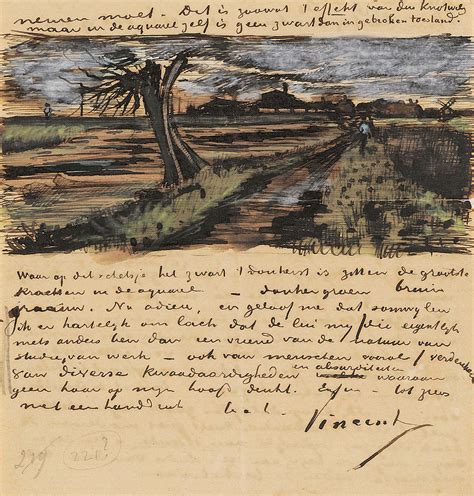 nemen moet. Dit is zoowat 't effekt van den Knotwilg
maar in de aquarel zelf is geen zwart dan in gebroken toestand.
Waar op dit schetsje het zwart 't donkerst is zitten de grootste
krachten in de aquarel — donker groen bruin
graauw. Nu adieu, en geloof me dat somwylen
ik er hartelyk om lach dat de lui my (die eigentlyk
niets anders ben dan een vriend van de natuur van
studie, van werk — ook van menschen vooral) verdenken
van diverse kwaadaardigheden en absurditeiten waaraan
geen haar op myn hoofd denkt. Enfin — tot ziens
met een handdruk
Vincent